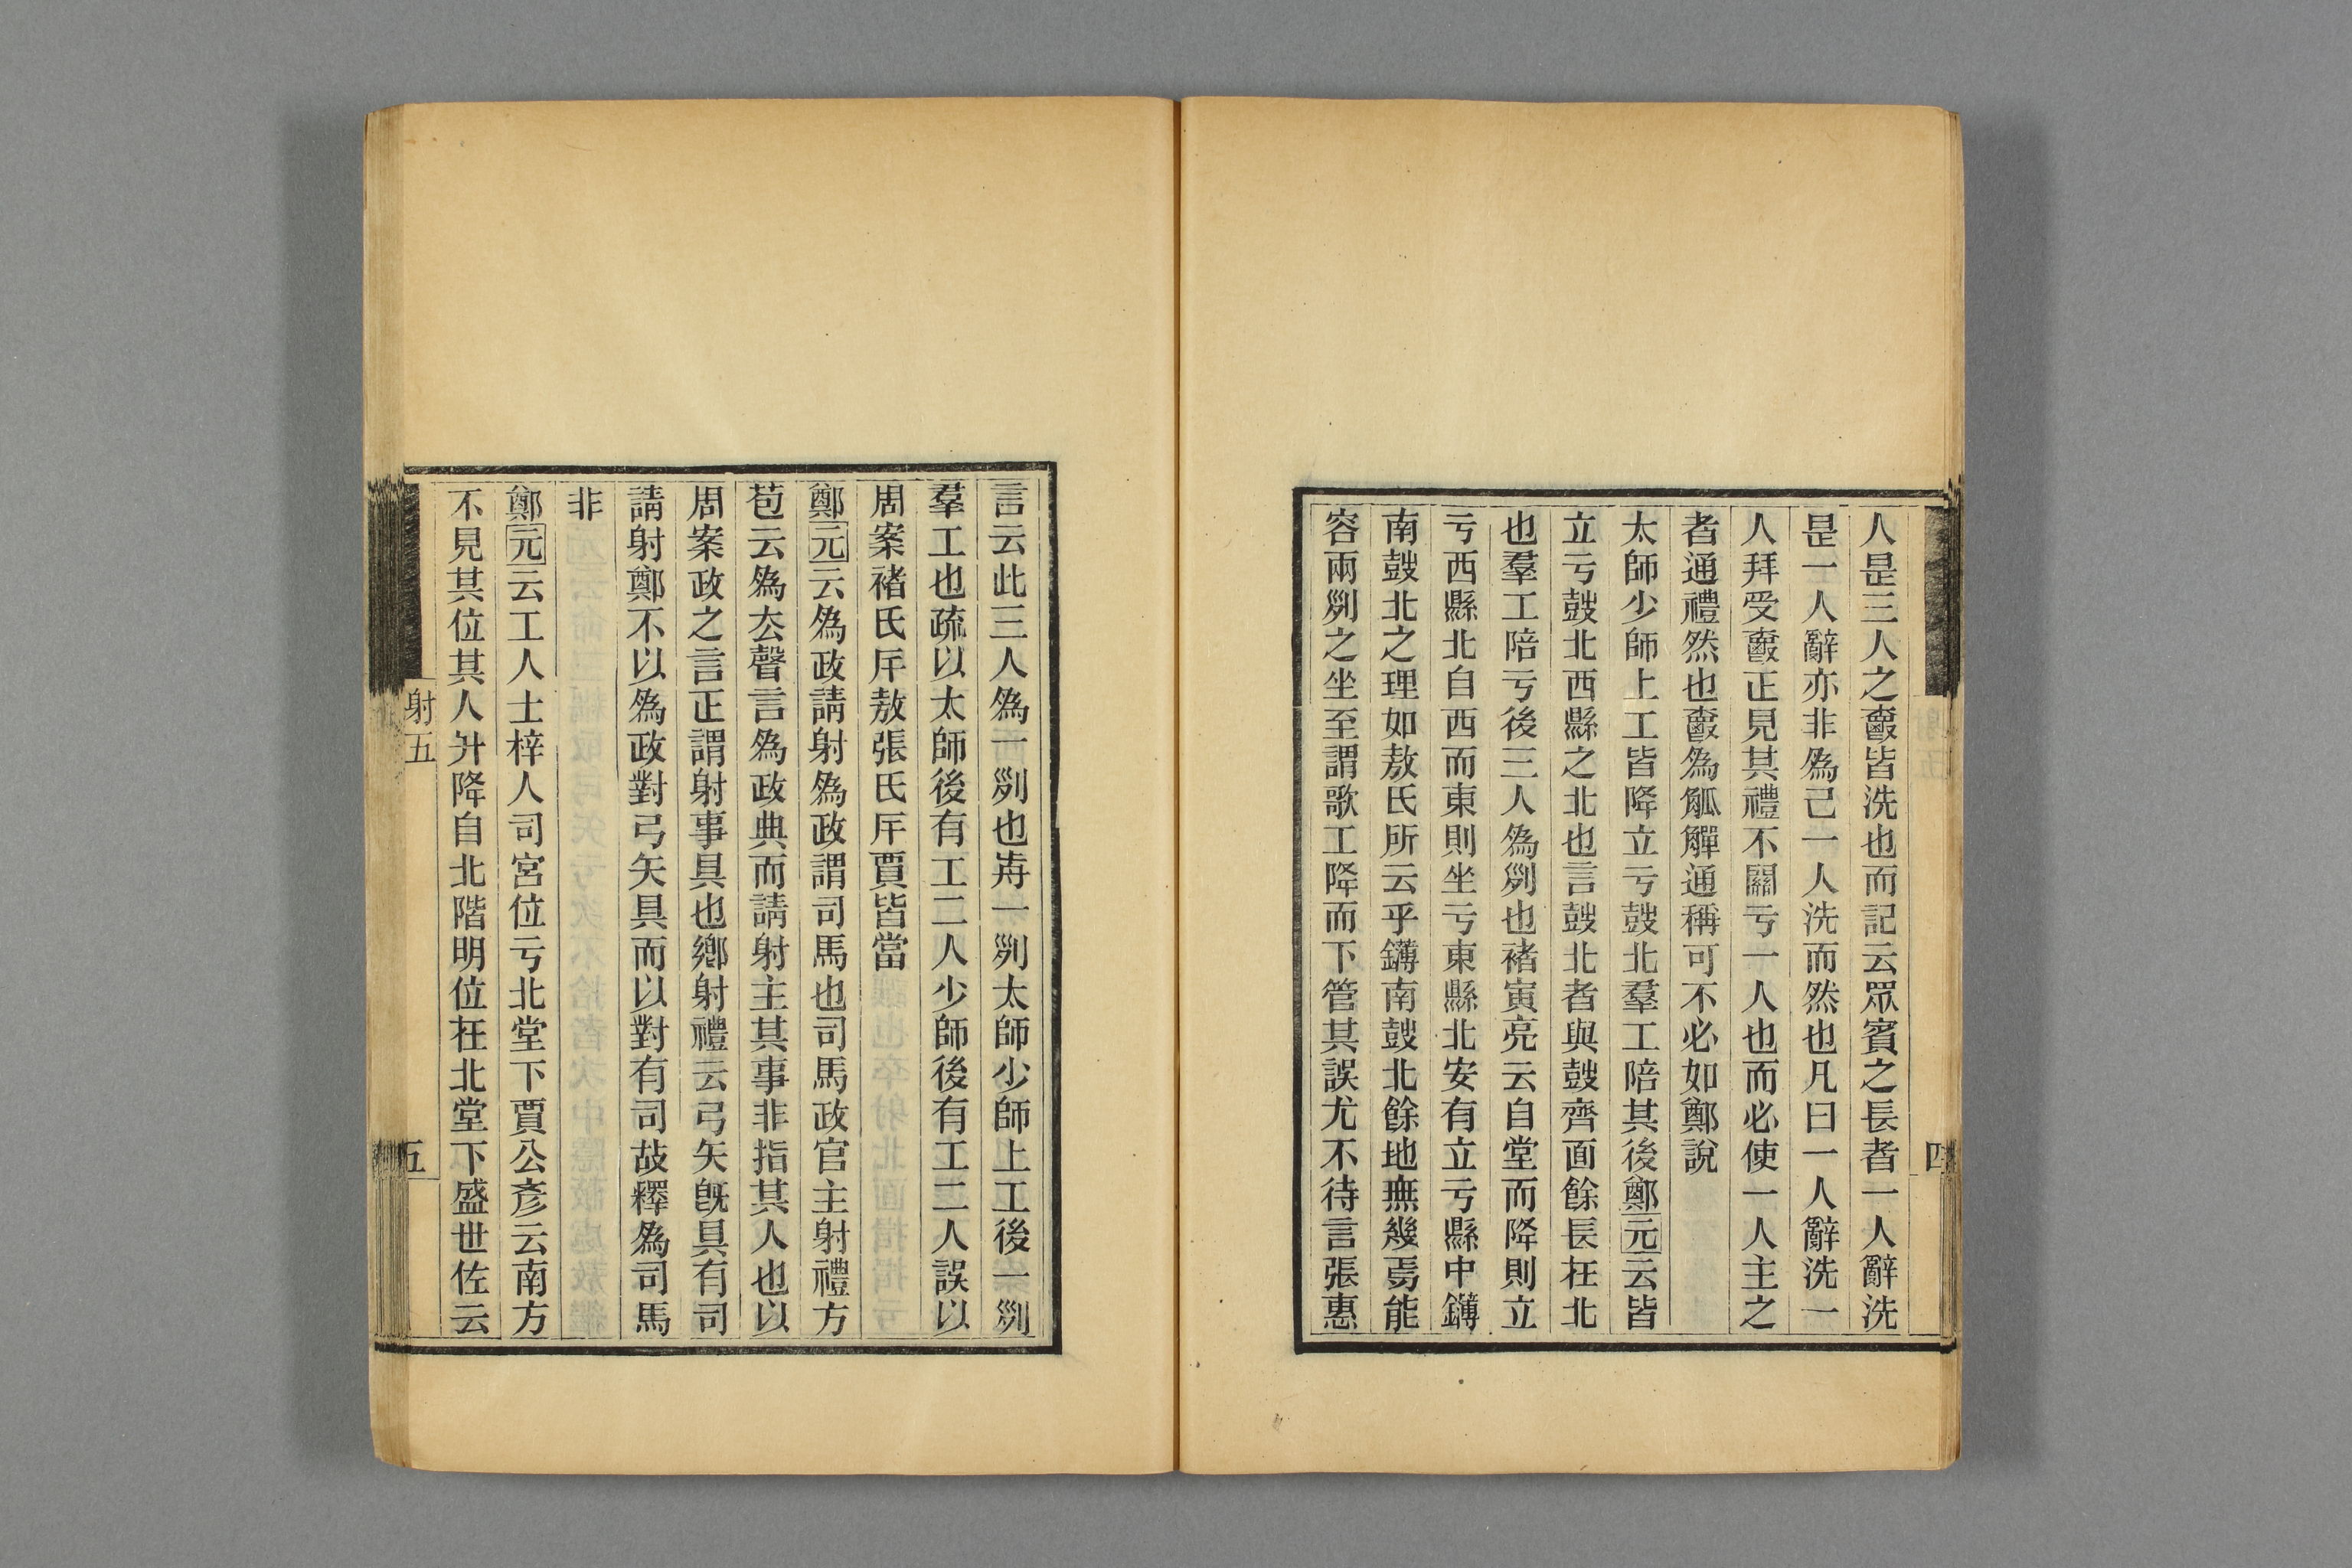 人是三人之爵皆洗也而記云眾賓之長者一人辭洗
是一人辭亦非爲己一人洗而然也凡曰一人辭洗一
人拜受爵正見其禮不關亏一人也而必使一人主之
者通禮然也爵爲觚觶通稱可不必如鄭說
太師少師上工皆降立亏鼓北羣工陪其後鄭元云皆
立亏鼓北西縣之北也言鼓北者與鼓齊面餘長在北
也羣工陪亏後三人爲列也褚寅亮云自堂而降則立
亏西縣北自西而東則坐亏東縣北安有立亏縣中鑮
南鼓北之理如敖氏所云乎鑮南鼓北餘地無幾焉能
容兩列之坐至謂歌工降而下管其誤尤不待言張惠
言云此三人爲一列也歬一列太師少師上工後一列
羣工也疏以太師後有工二人少師後有工二人誤以
周案褚氏斥敖張氏斥賈皆當
鄭元云爲政請射爲政謂司馬也司馬政官主射禮方
苞云爲去聲言爲政典而請射主其事非指其人也以
周案政之言正謂射事具也鄉射禮云弓矢既具有司
請射鄭不以爲政對弓矢具而以對有司故釋爲司馬
非
鄭元云工人士梓人司宮位亏北堂下賈公彥云南方
不見其位其人升降自北階明位在北堂下盛世佐云
射五
五
四